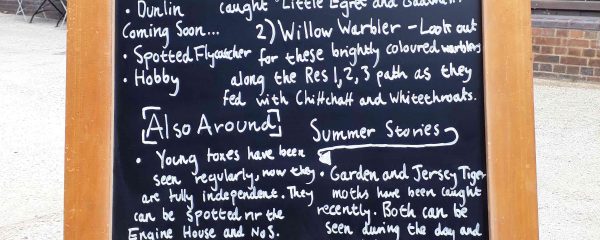 • Dunlin
caught "Little Egret and
Coming Soon...
2) Willow Warbler - Look out
• Spotted Flycatcher
for these brightly coloured warblers
• Hobby
along the Res 1, 2, 3 path as they
fed with Chiffchaff and Whitethroats.
[Also Around]
• Young foxes have been
seen regularly, now they
are fully independent. They
can be spotted nr the
Engine House and No5.
Summer Stories
• Garden and Jersey Tiger
moths have been caught
recently. Both can be
seen during the day and